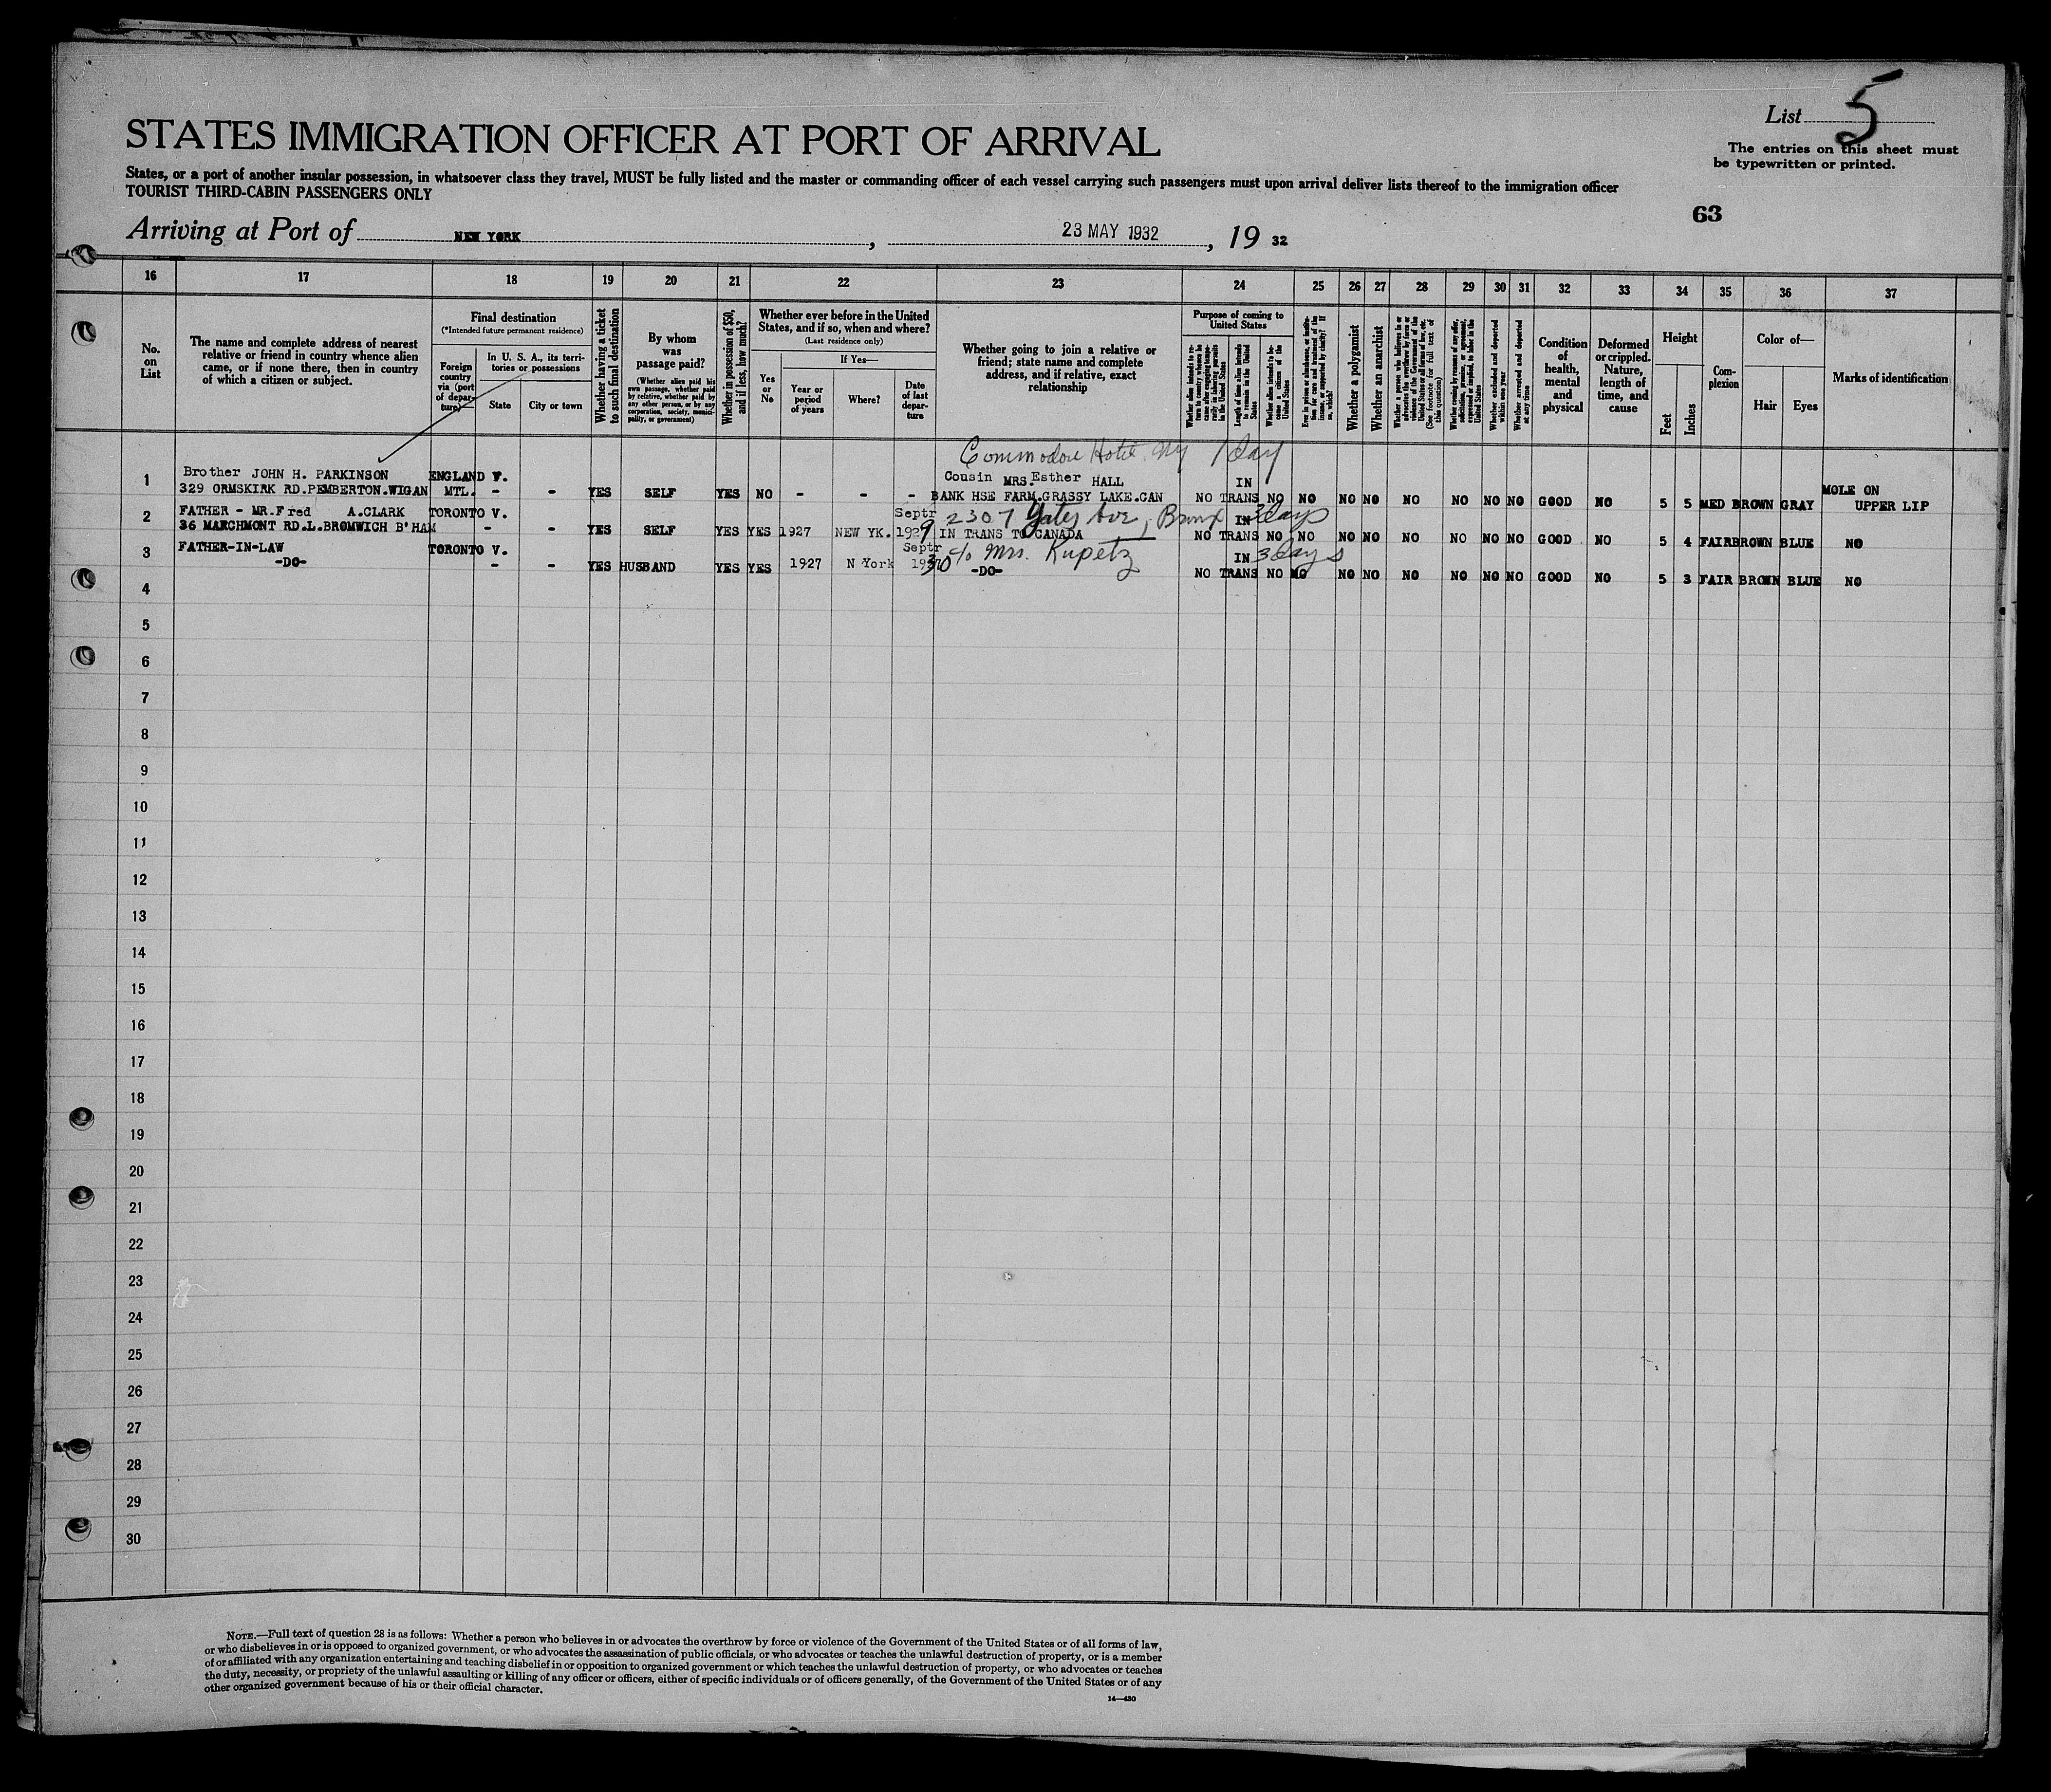 List 5
STATES IMMIGRATION OFFICER AT PORT OF ARRIVAL
The entries on this sheet must
be typewritten or printed.
States, or a port of another insular possession, in whatsoever class they travel, MUST be fully listed and the master or commanding officer of each vessel carrying such passengers must upon arrival deliver lists thereof to the immigration officer
TOURIST THIRD-CABIN PASSENGERS ONLY
63
Arriving at Port of NEW YORK, 23 MAY 1932, 19 32
16 17 18 19 20 21 22 23 24 25 26 27 28 29 30 31 32 33 34 35 36 37
No. on List
The name and complete address of nearest relative or friend in country whence alien came, or if none there, then in country of which a citizen or subject.
Final destination
(*Intended future permanent residence)
Foreign country via (port of departure)
In U. S. A., its territories or possessions
State
City or town
Whether having a ticket to such final destination
By whom was passage paid?
(Whether alien paid his own passage, whether paid by relative, whether paid by any other person, or by any corporation, society, municipality, or government)
Whether in possession of $50, and if less, how much?
Whether ever before in the United States, and if so, when and where?
(Last residence only)
If Yes—
Yes or No
Year or period of years
Where?
Date of last departure
Whether going to join a relative or friend; state name and complete address, and if relative, exact relationship
Purpose of coming to United States
Whether alien intends to return to country whence he came after engaging temporarily in laboring pursuits in the United States
Length of time alien intends to remain in the United States
Whether alien intends to become a citizen of the United States
Ever in prison or almshouse, or institution for care and treatment of the insane, or supported by charity? If so, which?
Whether a polygamist
Whether an anarchist
Whether a person who believes in or advocates the overthrow by force or violence of the Government of the United States or all forms of law, etc. (See footnote for full text of this question)
Whether coming by reason of any offer, solicitation, promise, or agreement, expressed or implied, to labor in the United States
Whether excluded and deported within one year
Whether arrested and deported at any time
Condition of health, mental and physical
Deformed or crippled. Nature, length of time, and cause
Height
Feet
Inches
Complexion
Color of—
Hair
Eyes
Marks of identification
Commodore Hotel. NY 1 day
1 Brother JOHN H. PARKINSON ENGLAND V. Cousin MRS. Esther HALL IN MOLE ON
329 ORMSKIRK RD.PEMBERTON.WIGAN MTL. - - YES SELF YES NO - - - BANK HSE FARM.GRASSY LAKE.CAN NO TRANS NO NO NO NO NO NO NO NO GOOD NO 5 5 MED BROWN GRAY UPPER LIP
2 FATHER - MR.Fred A.CLARK TORONTO V. Septr 2307 Yates Ave, Bronx IN 3 days
36 MARCHMONT RD.L.BROMWICH B'HAM - - YES SELF YES YES 1927 NEW YK. 1929 IN TRANS TO CANADA NO TRANS NO NO NO NO NO NO NO NO GOOD NO 5 4 FAIR BROWN BLUE NO
3 FATHER-IN-LAW TORONTO V. Septr c/o Mrs. Kupetz IN 3 days
-DO- - - YES HUSBAND YES YES 1927 N York 1930 -DO- NO TRANS NO NO NO NO NO NO NO NO GOOD NO 5 3 FAIR BROWN BLUE NO
4
5
6
7
8
9
10
11
12
13
14
15
16
17
18
19
20
21
22
23
24
25
26
27
28
29
30
NOTE.—Full text of question 28 is as follows: Whether a person who believes in or advocates the overthrow by force or violence of the Government of the United States or of all forms of law,
or who disbelieves in or is opposed to organized government, or who advocates the assassination of public officials, or who advocates or teaches the unlawful destruction of property, or is a member
of or affiliated with any organization entertaining and teaching disbelief in or opposition to organized government or which teaches the unlawful destruction of property, or who advocates or teaches
the duty, necessity, or propriety of the unlawful assaulting or killing of any officer or officers, either of specific individuals or of officers generally, of the Government of the United States or of any
other organized government because of his or their official character.
14—430